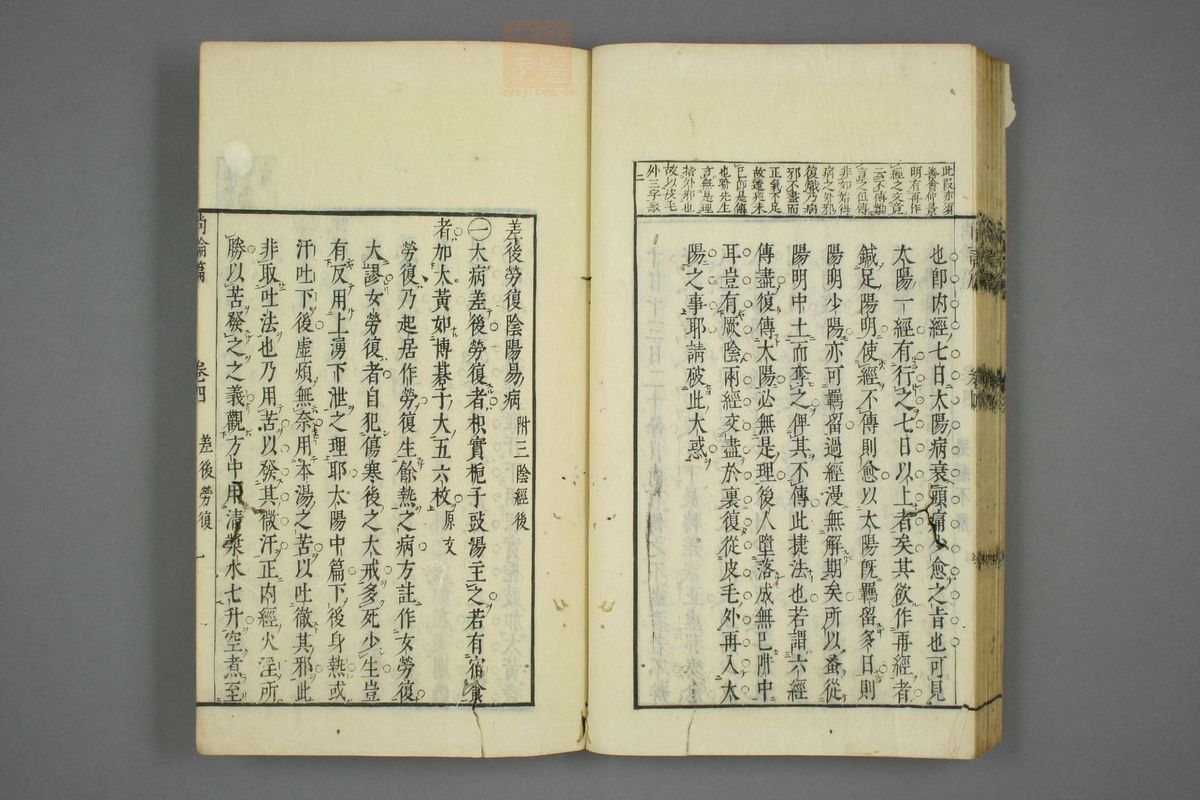 此段亦須
善會仲景
明有再作
經之文豈
云不傳
言之但傳
非如始得
病之外邪
復熾乃病
邪不盡而
正氣不足
故邪
已卽是傳
也喻先生
言無是理
指外邪也
故以皮毛
外三字
二
也卽内經七日太陽病衰頭痛少愈之旨也可見
太陽一經有行之七日以上者矣其欲作再經者
鍼足陽明使經不傳則愈以太陽旣羈留多日則
陽明少陽亦可羈留過經漫無解期矣所以蚤從
陽明中土而奪之俾其不傳此捷法也若謂六經
傳盡復傳太陽必無是理後人墮落成無已阱中
耳豈有厥陰兩經交盡於裏復從皮毛外再入太
陽之事耶請破此大惑
差後勞復陰陽易病 附三陰經後
㊀大病差後勞復者枳實梔子豉湯主之若有宿食
者加大黃如博碁子大五六枚 原文
勞復乃起居作勞復生餘熱之病方註作女勞復
大謬女勞復者自犯傷寒後之大戒多死少生豈
有反用上湧下泄之理耶太陽中篇下後身熱或
汗吐下後虛煩無奈用本湯之苦以吐徹其邪此
非取吐法也乃用苦以發其微汗正内經火淫所
勝以苦發之之義觀方中用清漿水七升空煮至
尚論篇 卷四 差後勞復 一
zysj.com.cn